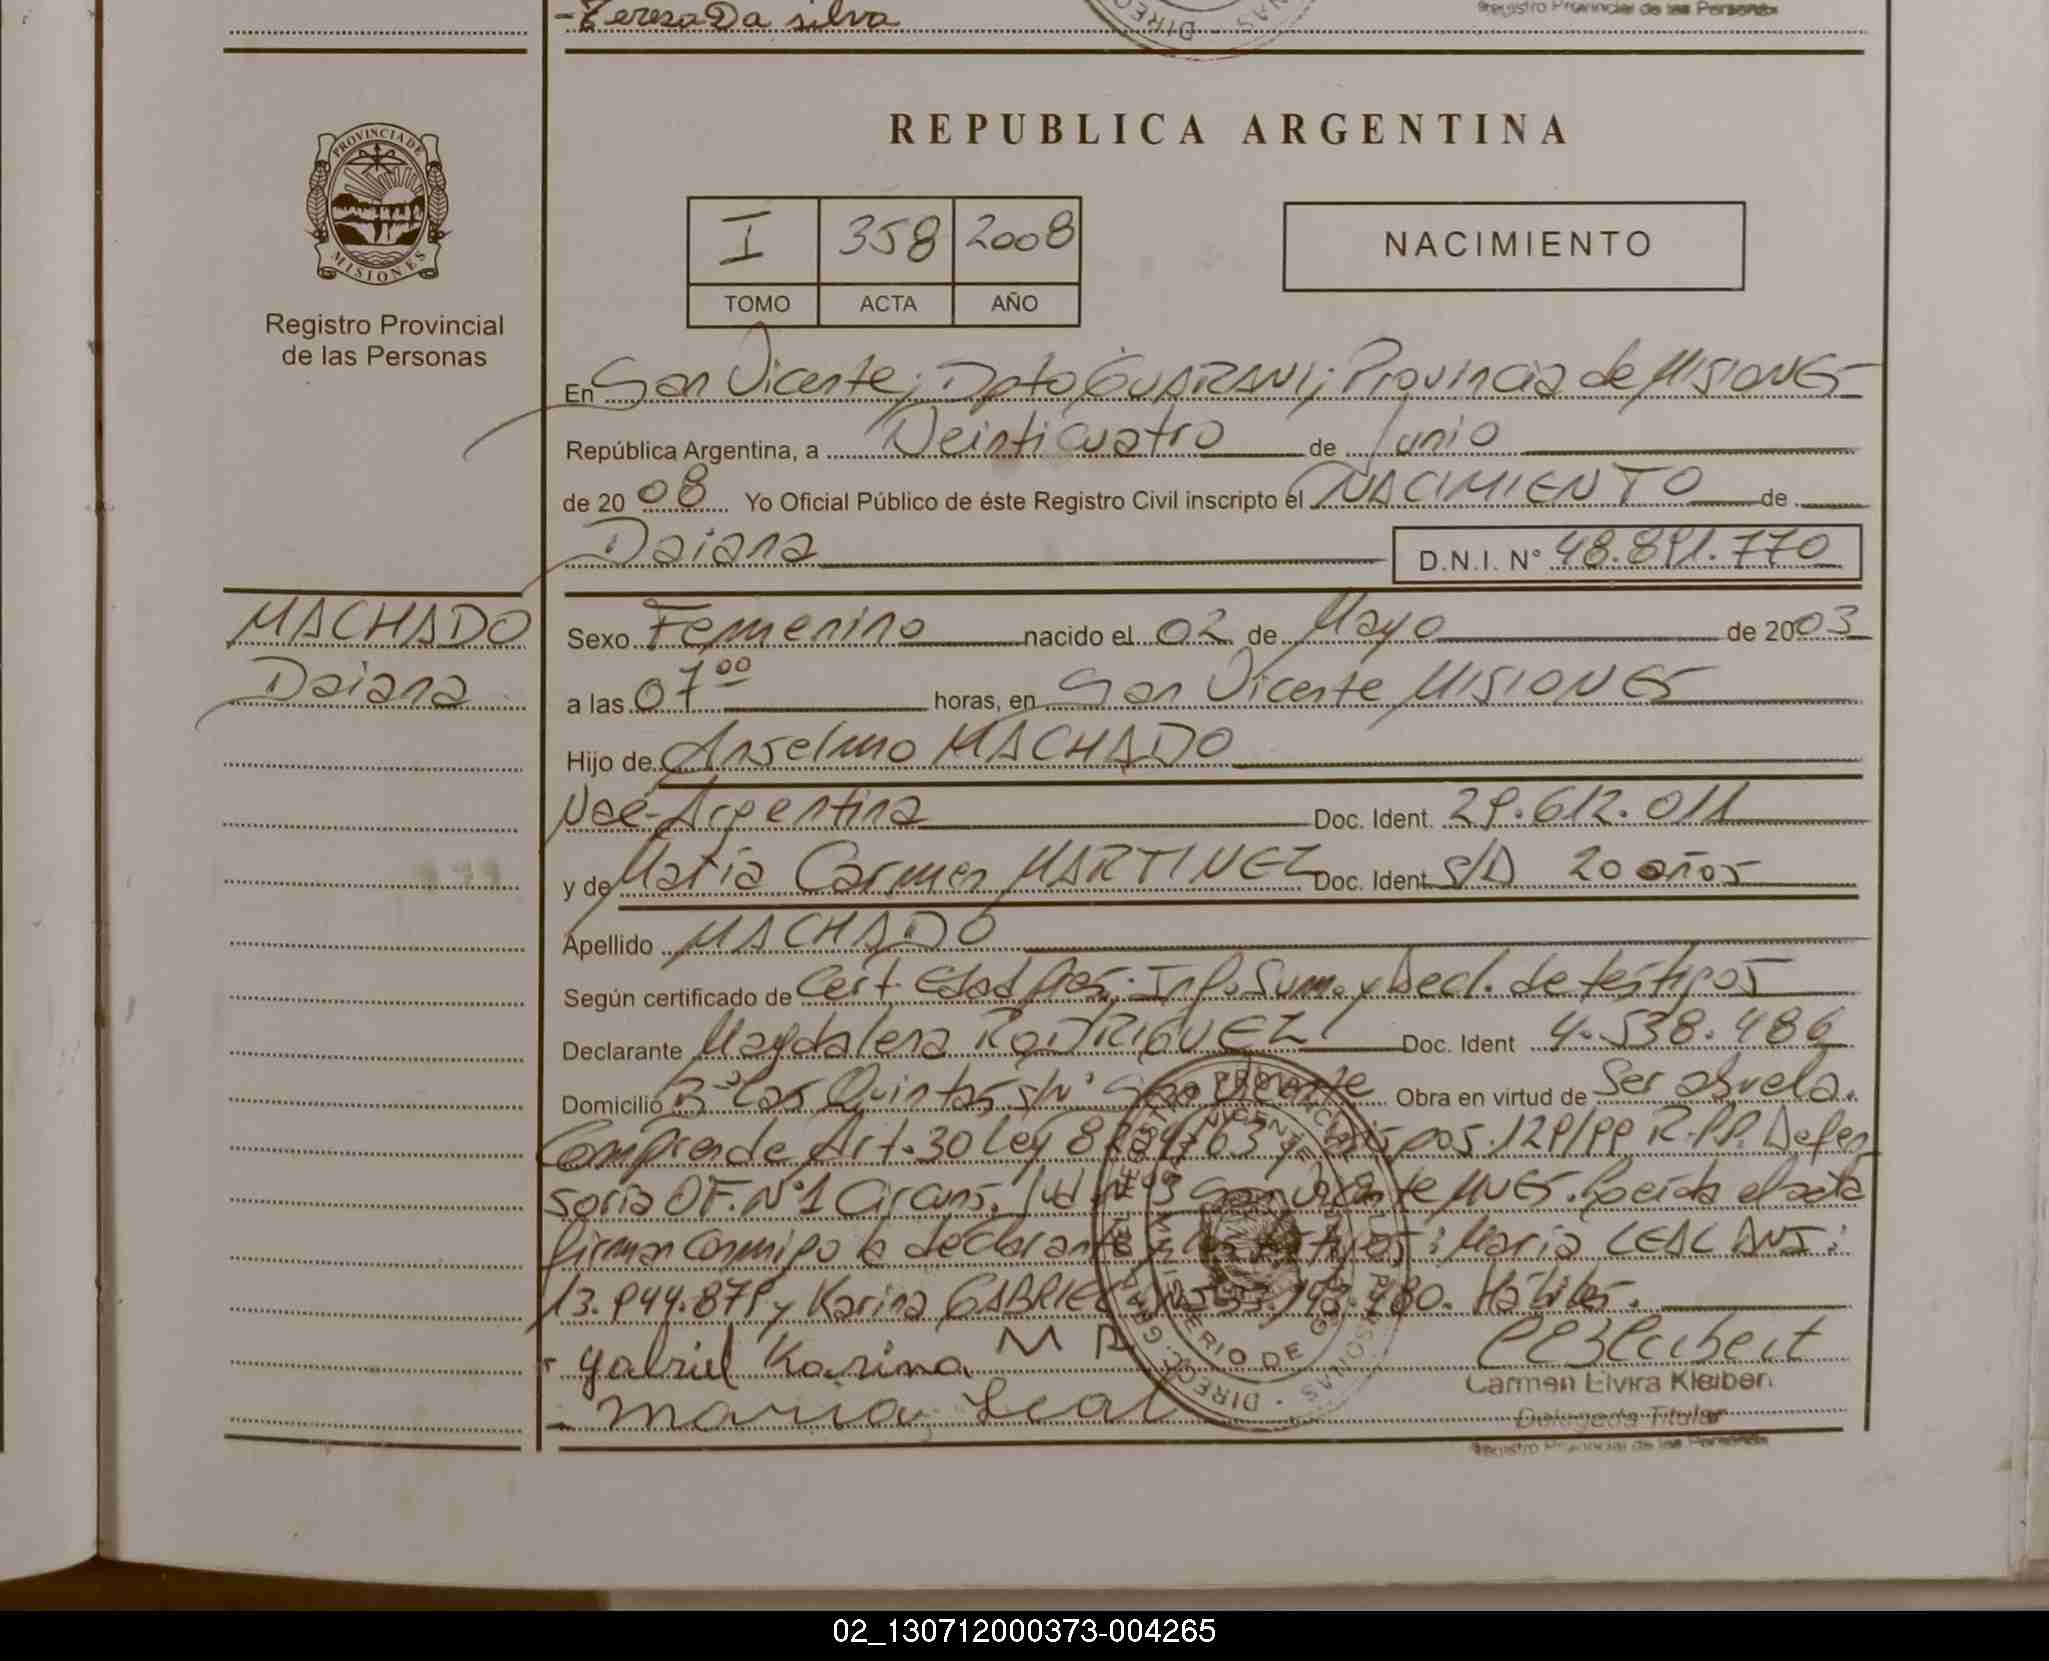 -Teresa Da silva
Registro Provincial de las Personas
PROVINCIA DE
MISIONES
Registro Provincial
de las Personas
REPUBLICA ARGENTINA
I 358 2008
TOMO ACTA AÑO
NACIMIENTO
En San Vicente; Dpto GUARANI; Provincia de MISIONES
República Argentina, a Veinticuatro de Junio
de 2008 Yo Oficial Público de éste Registro Civil inscripto el NACIMIENTO de
Daiana
D.N.I. N° 48.891.770
MACHADO
Daiana
Sexo Femenino nacido el 02 de Mayo de 2003
a las 07 00 horas, en San Vicente MISIONES
Hijo de Anselmo MACHADO
Nac. Argentina Doc. Ident. 29.612.011
y de Maria Carmen MARTINEZ Doc. Ident. S/D 20 años
Apellido MACHADO
Según certificado de Cert. Edad Inf. Sum. y Decl. de testigos
Declarante Magdalena RODRIGUEZ Doc. Ident 4.538.486
Domicilio B° Las Quintas s/n° San Vicente Obra en virtud de Ser abuela.
Comprende Art. 30 Ley 129/99 R.P.P. Defen
soria OF. N°1 Circuns. Jud. San Vicente MNES. el acta
firman conmigo la declarante y testigos: Maria LEAL DNI:
13.944.879 y Karina GABRIEL Hábiles.
- gabriel Karina M R
- maria Leal
Carmen Elvira Kleibert
Delegada Titular
Registro Provincial de las Personas
02_130712000373-004265